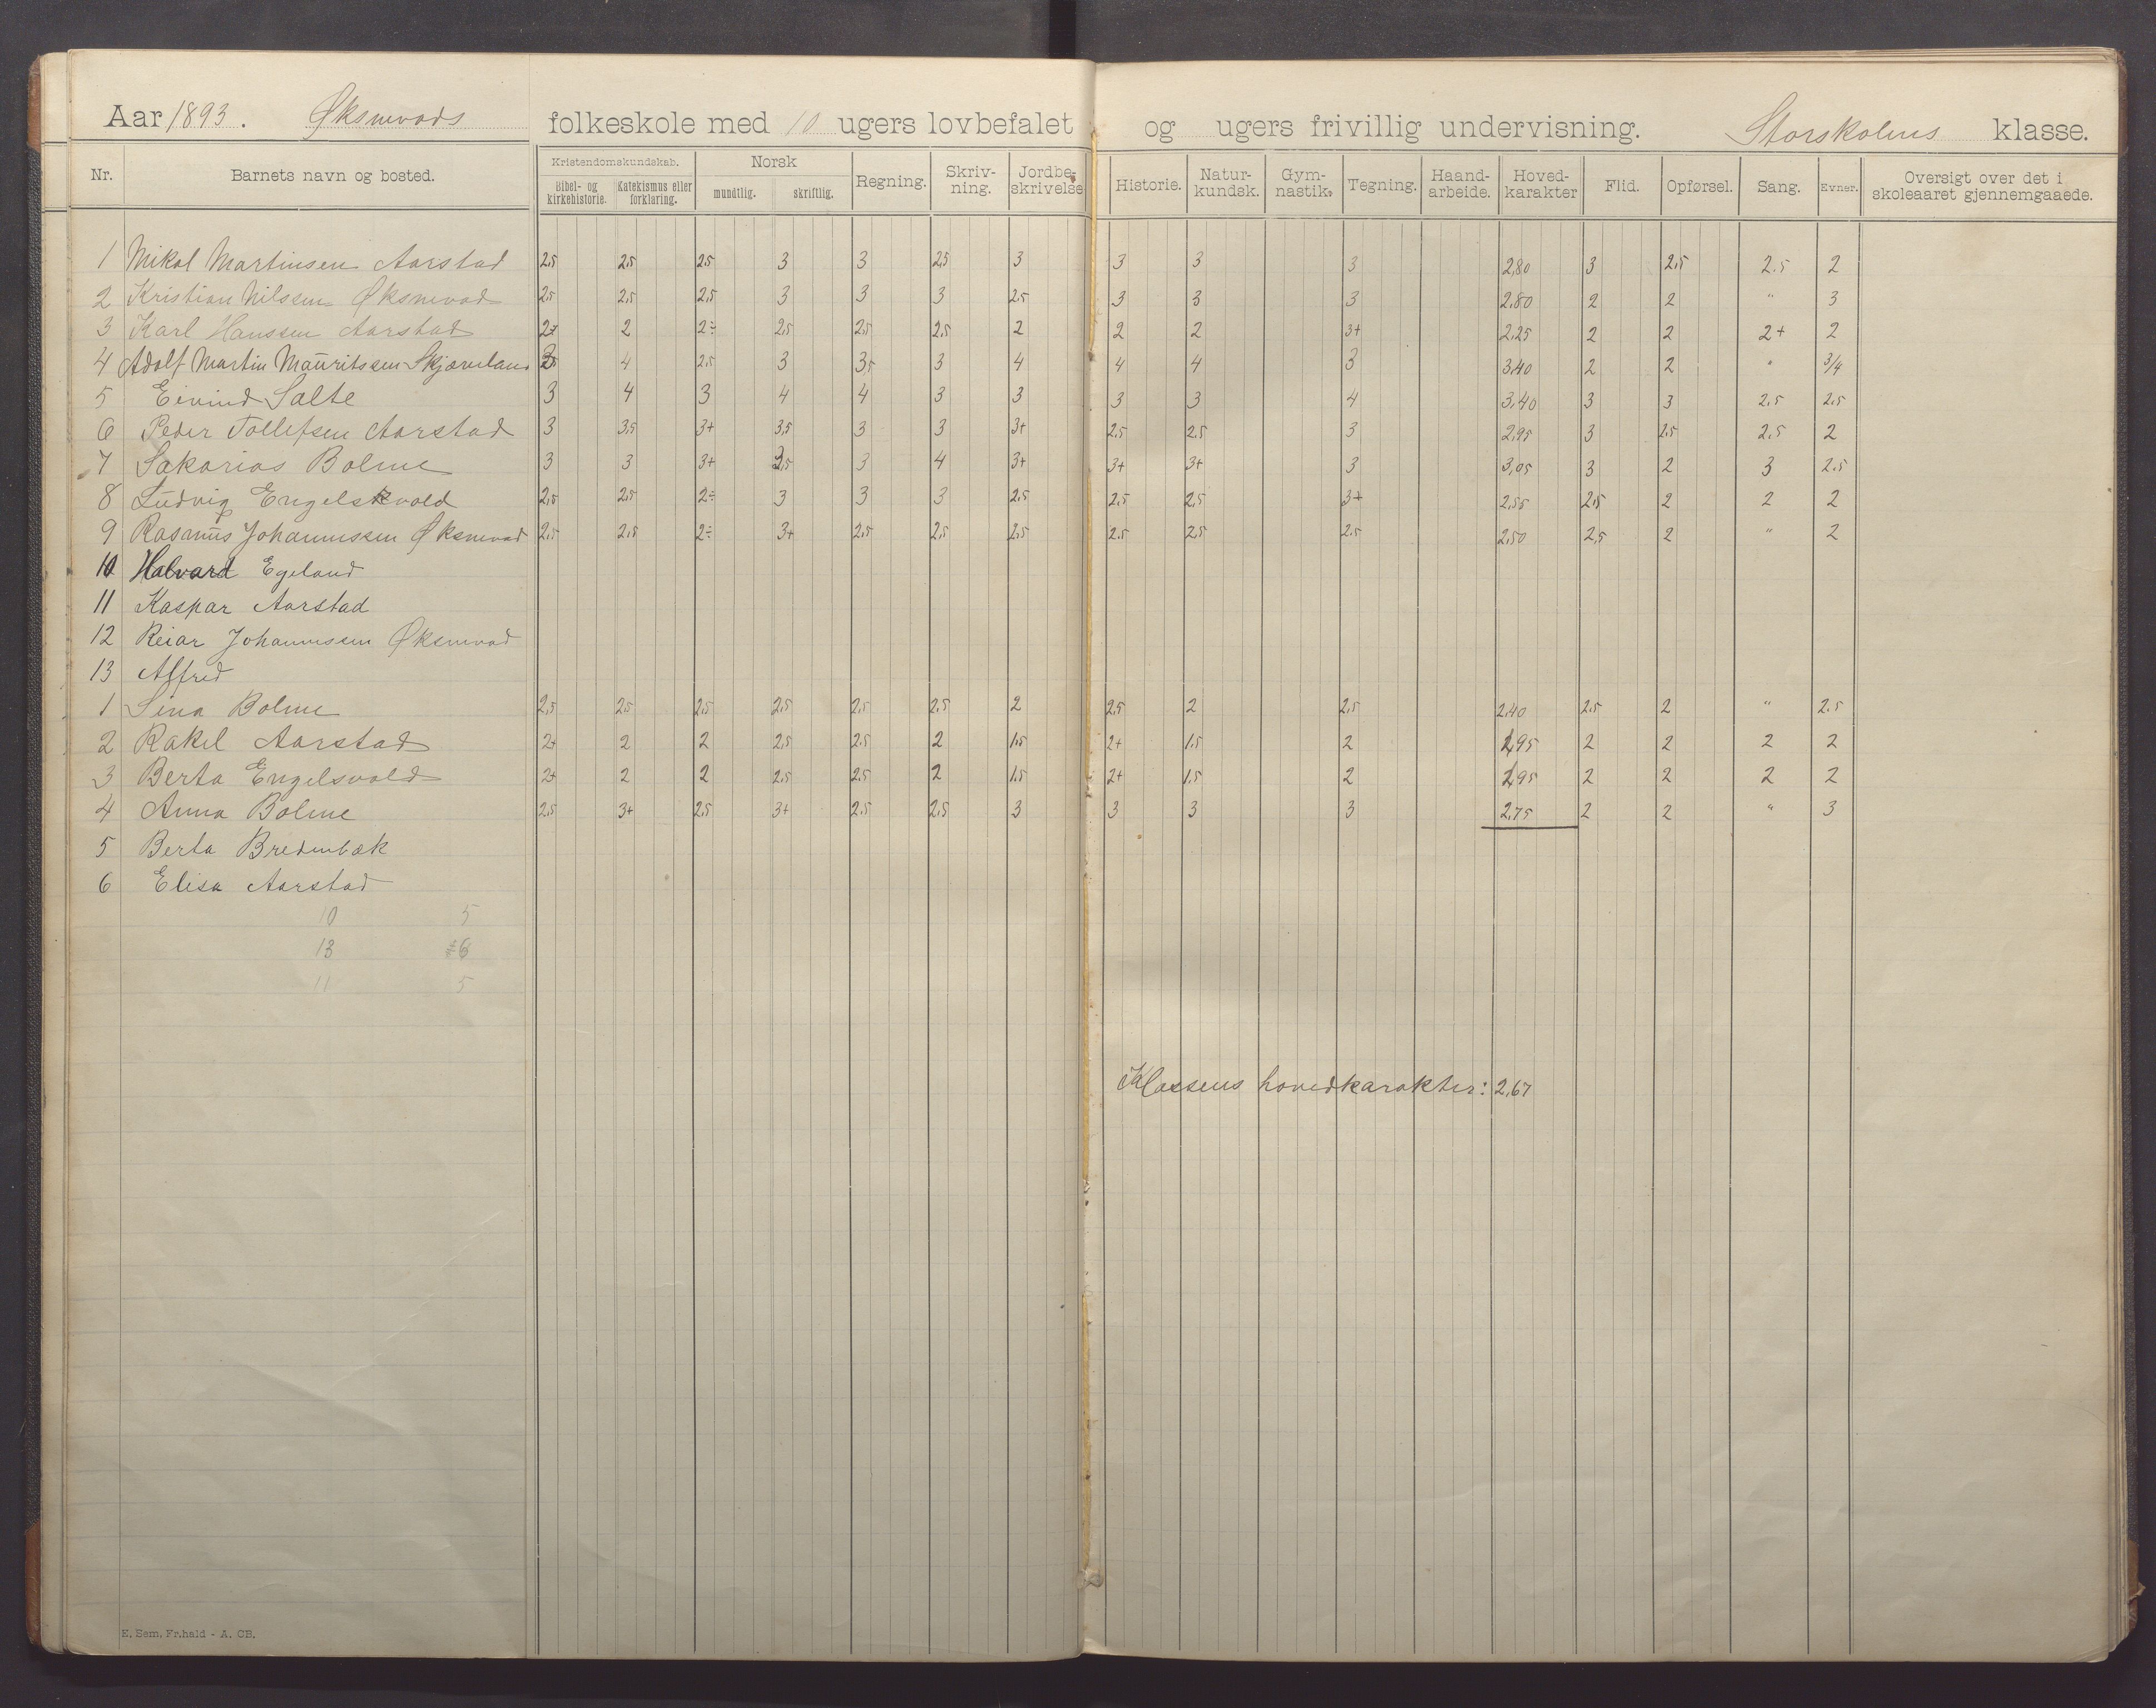 Aar 1893. Øksnevads folkeskole med 10 ugers lovbefalet og ugers frivillig undervisning. Storskolens klasse.
Nr. Barnets navn og bosted. Kristendomskundskab. Bibel- og kirkehistorie. Katekismus eller forklaring. Norsk mundtlig. skriftlig. Regning. Skriv-ning. Jordbe-skrivelse Historie. Natur-kundsk. Gym-nastik. Tegning. Haand-arbeide. Hoved-karakter Flid. Opførsel. Sang. Evner. Oversigt over det i skoleaaret gjennemgaaede.
1 Mikal Martinsen Aarstad 2,5 2,5 2,5 3 3 2,5 3 3 3 3 2,80 3 2,5 2.5 2
2 Kristian Nilssen Øksnevad 2,5 2,5 2,5 3 3 3 2,5 3 3 3 2.80 2 2 " 3
3 Karl Hanssen Aarstad 2+ 2 2÷ 2,5 2,5 2,5 2 2 2 3+ 2,25 2 2 2+ 2
4 Adolf Martin Mauritssen Skjæveland 4 2,5 3 3,5 3 4 4 4 3 3,40 2 2 " 3/4
5 Eivind Salte 3 4 3 4 4 3 3 3 3 4 3,40 3 3 2,5 2,5
6 Peder Tollefsen Aarstad 3 3,5 3+ 3,5 3 3 3+ 2,5 2,5 3 2,95 3 2,5 2,5 2
7 Sakarias Bolme 3 3 3+ 2,5 3 4 3+ 3+ 3+ 3 3,05 3 2 3 2.5
8 Ludvig Engelsvold 2,5 2,5 2÷ 3 3 3 2,5 2,5 2,5 3+ 2,55 2,5 2 2 2
9 Rasmus Johannessen Øksnevad 2,5 2,5 2÷ 3+ 2,5 2,5 2,5 2.5 2,5 2.5 2,50 2,5 2 " 2
10 Halvard Egeland
11 Kaspar Aarstad
12 Reiar Johannessen Øksnevad
13 Alfred
1 Sina Bolme 2,5 2,5 2,5 2,5 2,5 2,5 2 2,5 2 2,5 2,40 2.5 2 " 2.5
2 Rakel Aarstad 2+ 2 2 2,5 2.5 2 1.5 2+ 1.5 2 1,95 2 2 2 2
3 Berta Engelsvold 2+ 2 2 2,5 2.5 2 1.5 2+ 1.5 2 1,95 2 2 2 2
4 Anna Bolme 2,5 3+ 2,5 3+ 2.5 2,5 3 3 3 3 2,75 2 2 " 3
5 Berta Bredenbæk
6 Elisa Aarstad
10 5
13 6
11 5
Klassens hovedkarakter: 2,67
K. Sem. Fr.hald - A. CB.